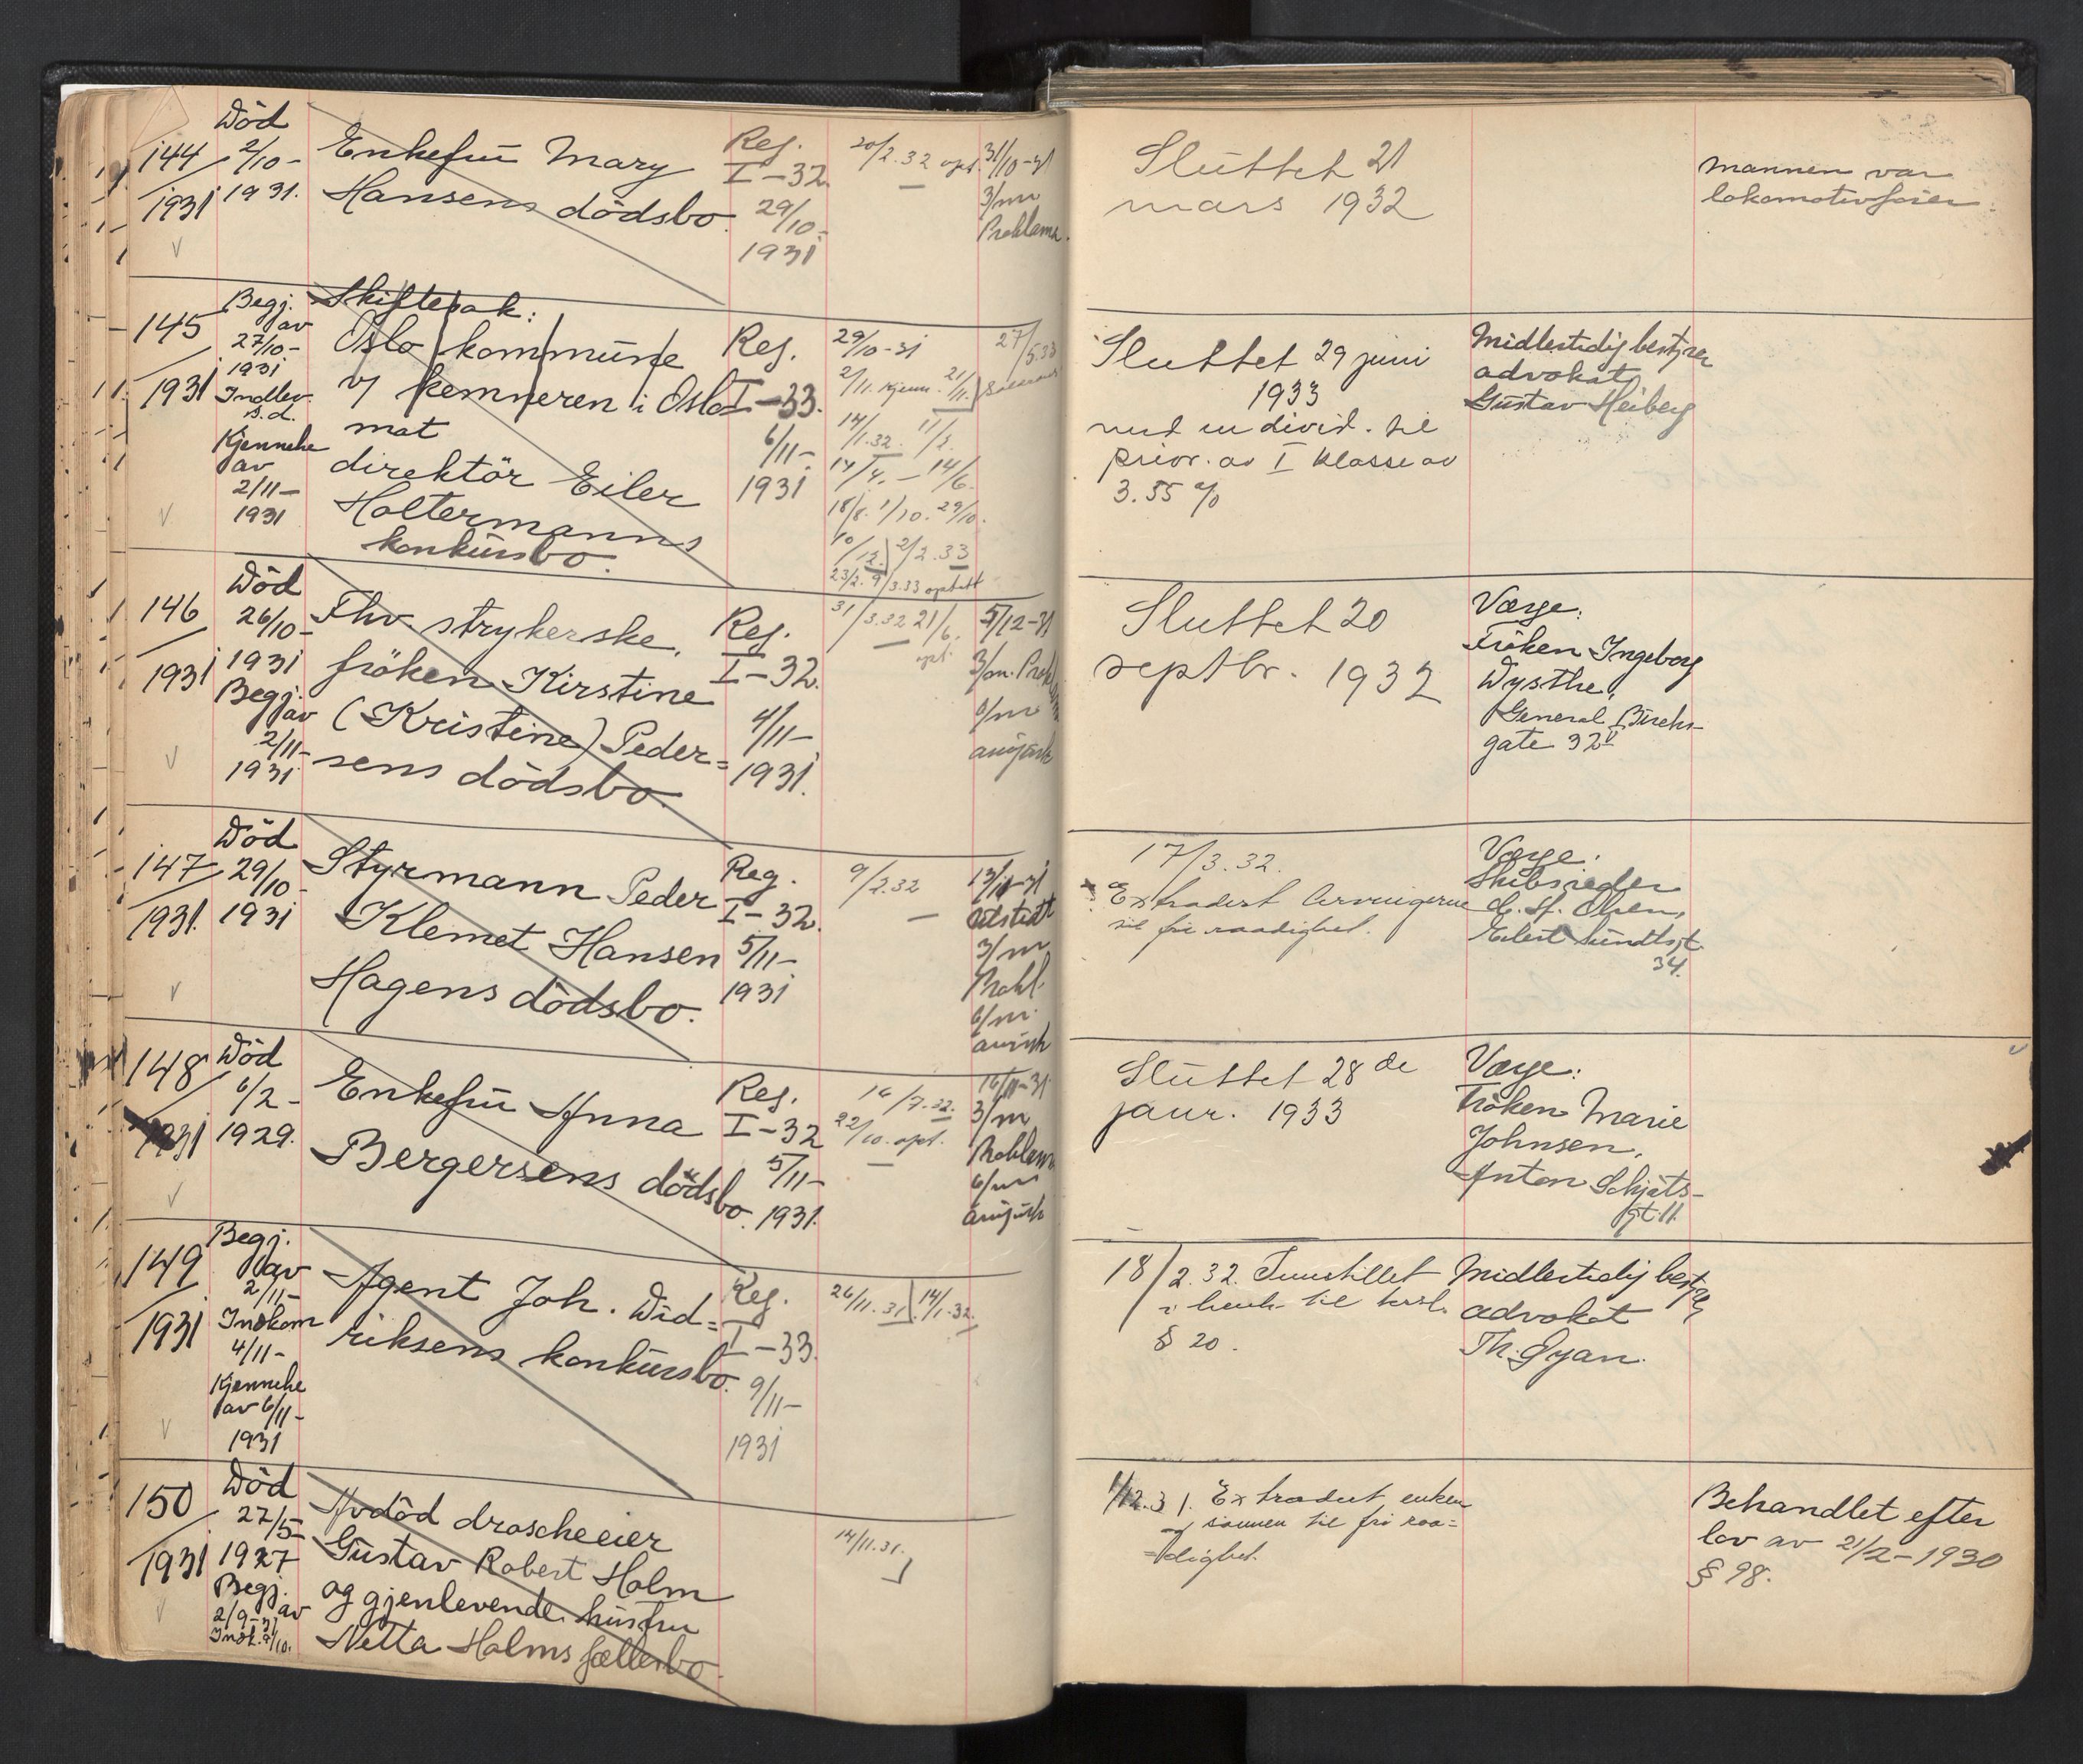 144
1931
Död
2/10-
1931.
Enkefru Mary
Hansens dödsbo.
Reg.
I-32.
29/10-
1931
20/2.32 opt.
31/10-31
3/m
Proklama.
Sluttet 21
mars 1932
Mannen var
lokomotivfører.
145
1931
Begj.
av
27/10-
1931
Indlev.
s.d.
Kjennelse
av
2/11-
1931
Skiftesak:
Oslo kommune
v/ kemneren i Oslo
mot
direktör Eiler
Holtermanns
konkursbo.
Reg.
I-33.
6/11-
1931
29/10-31
2/11. kjenn. 21/11.
14/1.32. 11/3.
14/4. - 14/6.
18/8. 1/10. 29/10.
10/12. 2/2.33
23/2. 9/3.33 opt
27/5.33
Sluttet 29 juni
1933
med en divid. til
prior. av I klasse av
3.55 %
Midlertidig bestyrer
advokat
Gustav Heiberg
146
1931
Död
26/10-
1931
Begj. av
2/11-
1931
Fhv. strykerske,
fröken Kirstine
(Kristine) Peder=
sens dödsbo.
Reg.
I-32.
4/11-
1931.
31/3.32 21/6.
opt.
5/12-31
3/m. Prokl
6/m
Sluttet 20
septbr. 1932
Verge:
Fröken Ingeborg
Dysthe,
General Birchs-
gate 32 V
147
1931.
Död
29/10-
1931
Styrmann Peder
Klemet Hansen
Hagens dödsbo.
Reg.
I-32.
5/11-
1931
9/2.32
13/11-31
Utstedt
3/m
Prokl.
6/m.
17/3.32.
Extradert arvingerne
til fri raadighet.
Verge:
Skibsreder
Olsen,
Eilert Sundtsgt.
34.
148
1931
Död
6/2-
1929.
Enkefru Anna
Bergersens dödsbo.
Reg.
I-32
5/11-
1931.
16/7.32.
22/10. opt.
16/11-31
3/m
Proklama
6/m
Sluttet 28de
jaur. 1933
Verge:
Fröken Marie
Johnsen,
Anton Schjöts-
gt. 11.
149
1931
Begj.
av
2/11-
Indkom
4/11-
Kjennelse
av 6/11-
1931
Agent Joh. Did=
riksens konkursbo.
Reg.
I-33.
9/11-
1931
26/11.31 14/1.32.
18/2.32. Innstillet
i henh. til kksl.
§ 20.
Midlertidig bestyrer
advokat
Th. Gyan.
150
1931
Död
27/5-
1927
Begj. av
2/9-31
Indk. 9/10.
Avdöd droscheeier
Gustav Robert Holm
og gjenlevende hustru
Netta Holms fællesbo.
14/11.31.
1/12.31. Extradert enken
og sönnen til fri raa=
dighet.
Behandlet efter
lov av 21/2-1930
§ 98.